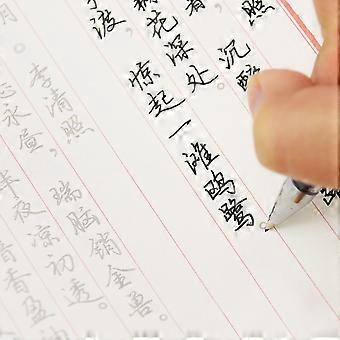 照
，沉醉
花深处
渡，惊起一滩鸥鹭
李清照
永昼，瑞脑销金兽。
半夜凉初透。
香盈